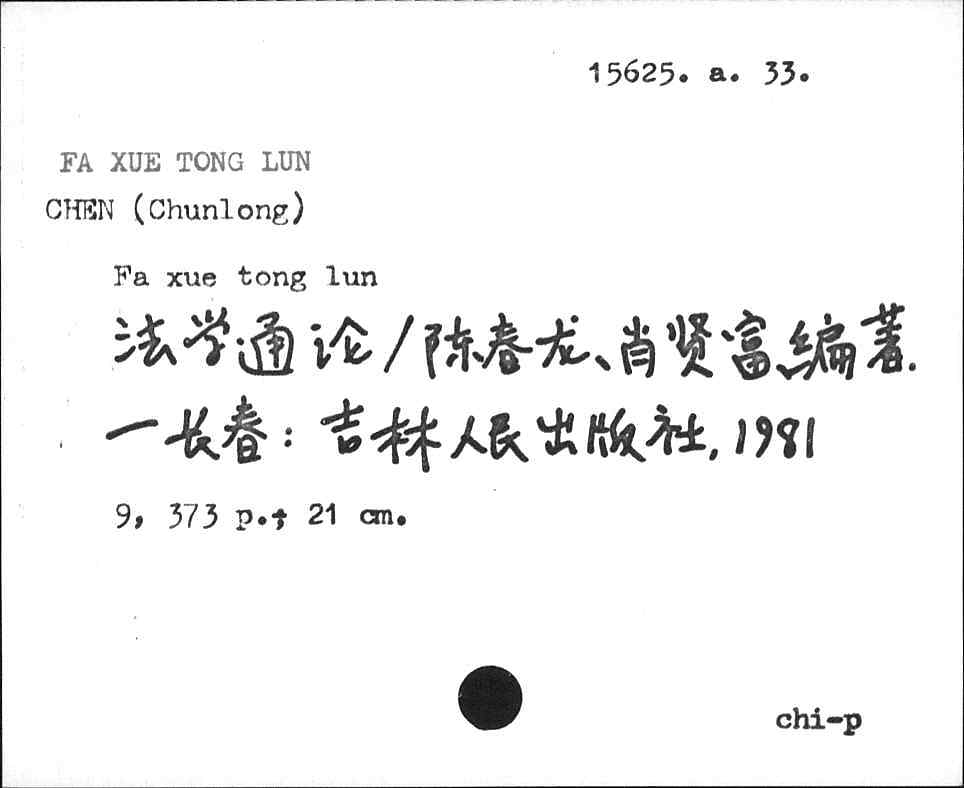 15625. a. 33.
FA XUE TONG LUN
CHEN (Chunlong)
Fa xue tong lun
法学通论/陈春龙、肖贤富编著.
一长春: 吉林人民出版社, 1981
9, 373 p.; 21 cm.
chi-p